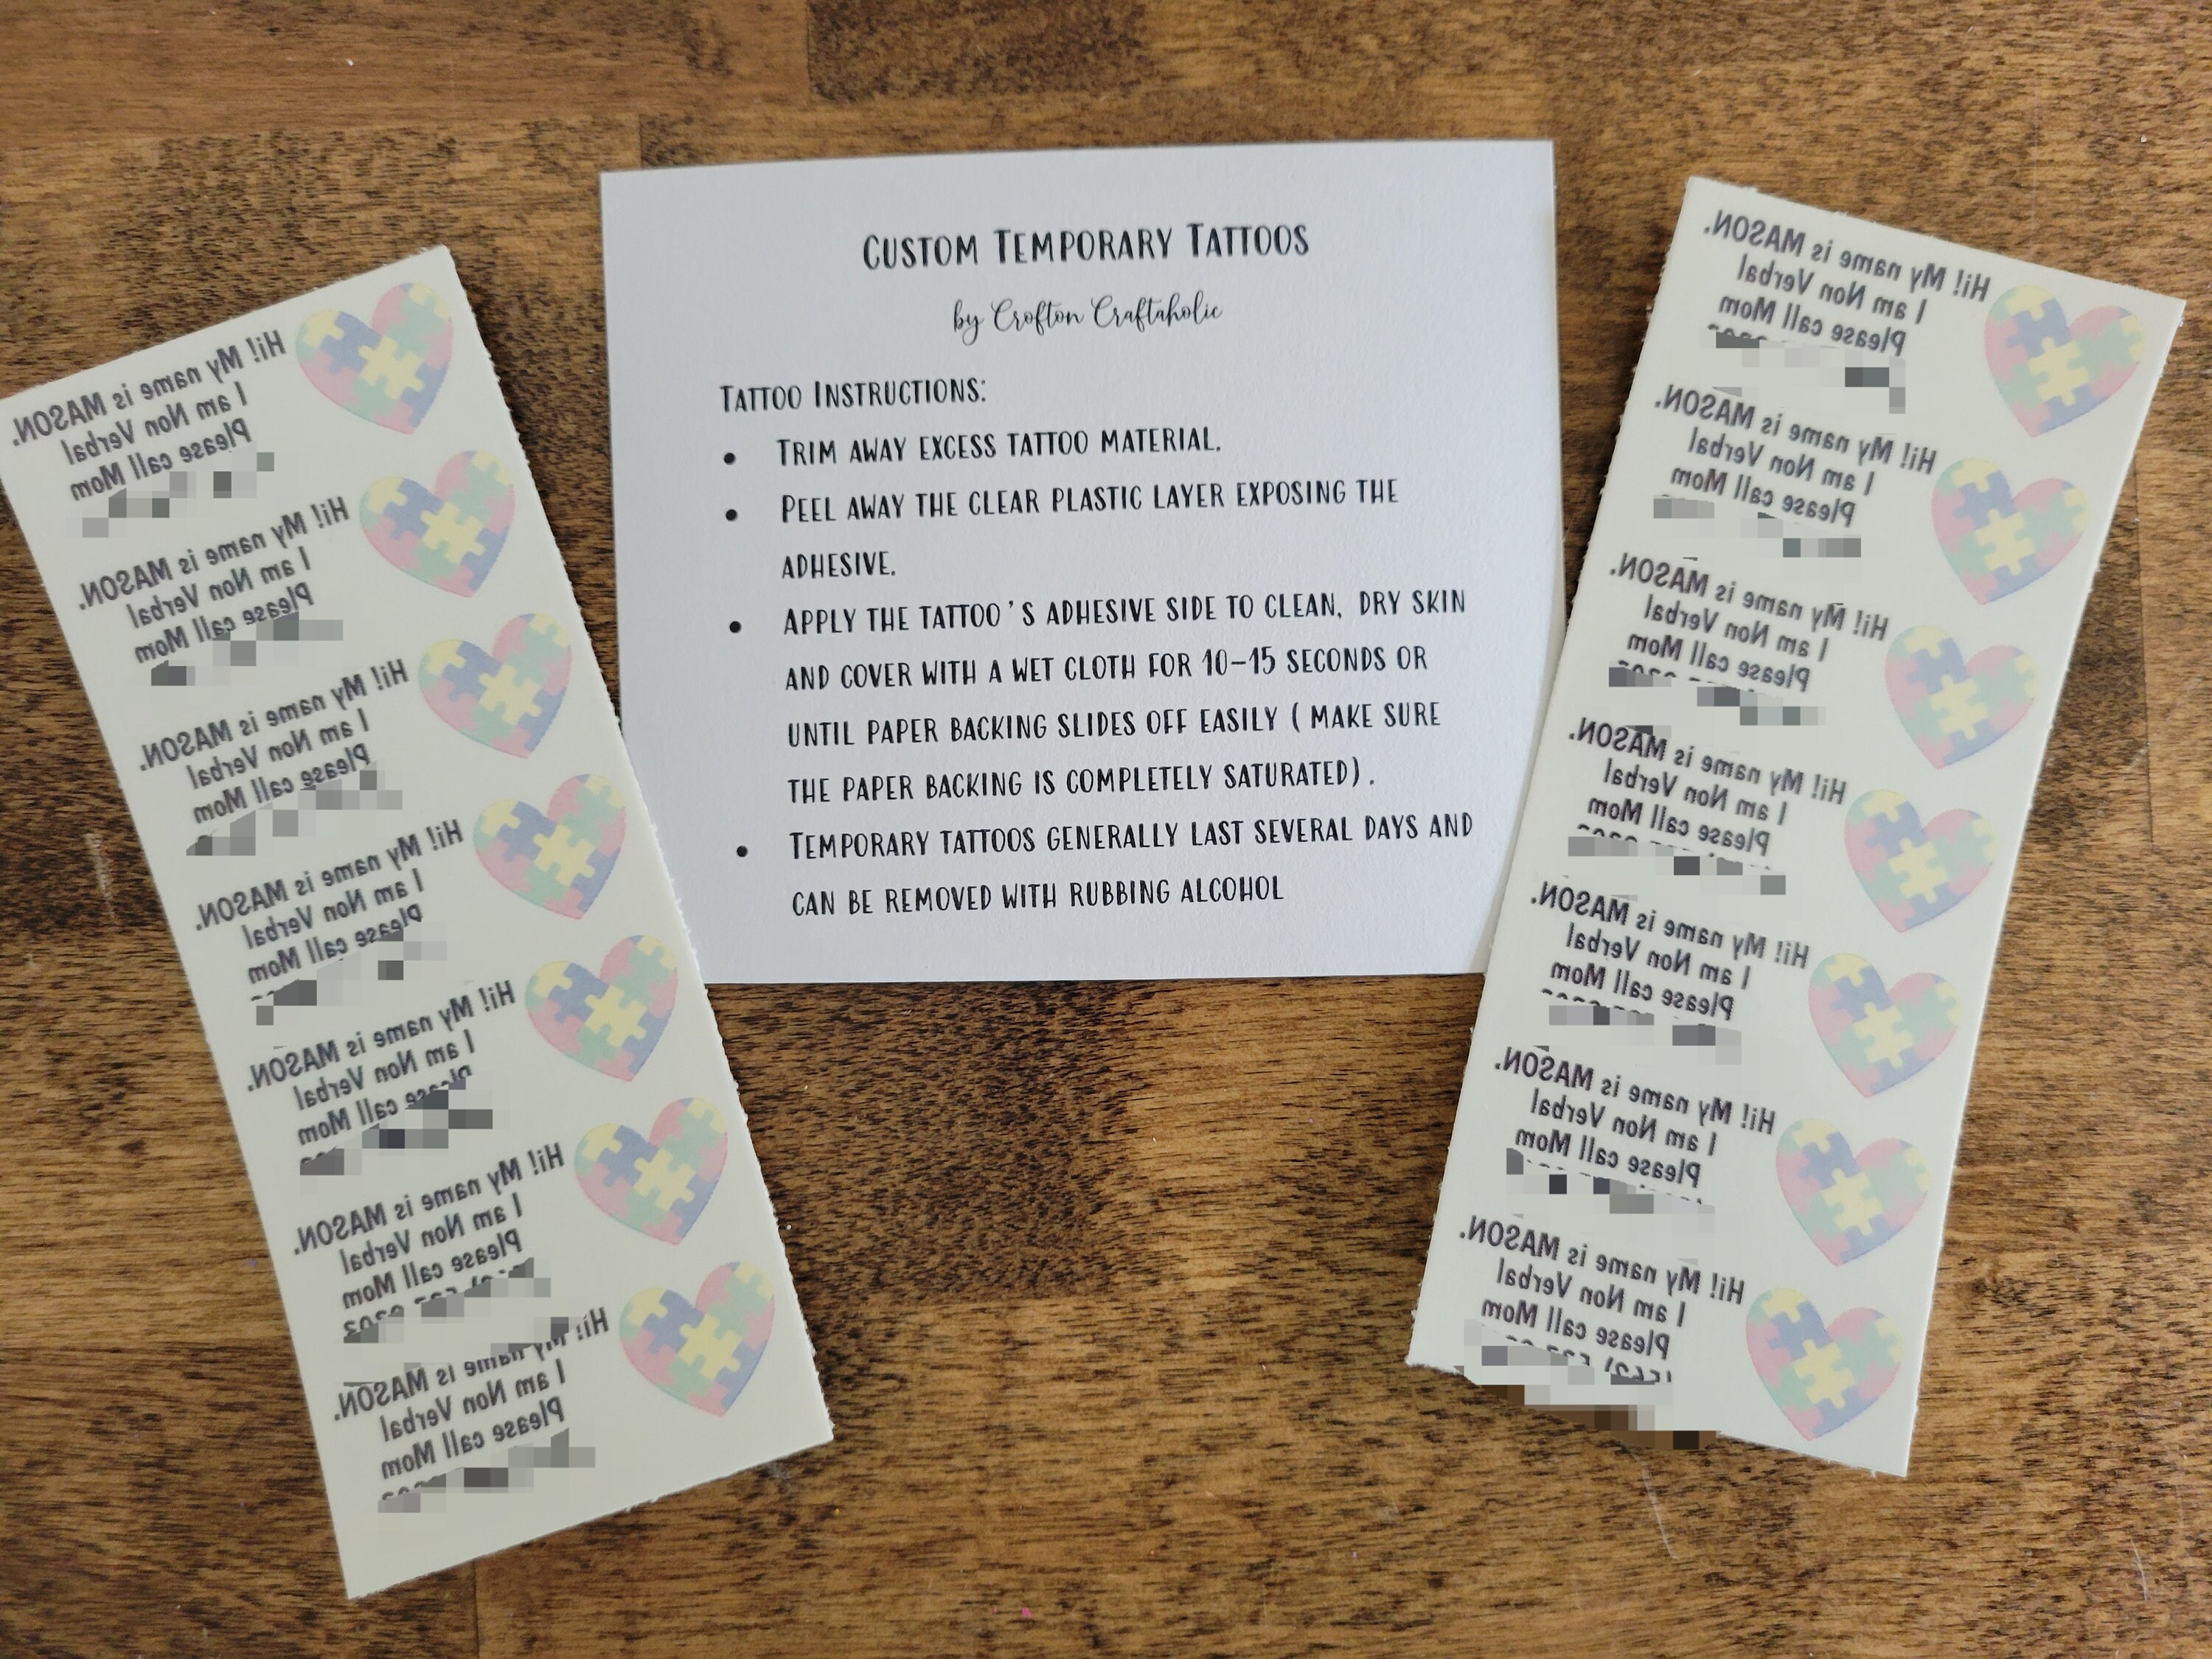 Custom Temporary Tattoos
by Crofton Craftaholic
Tattoo Instructions:
• Trim away excess tattoo material.
• Peel away the clear plastic layer exposing the
adhesive.
• Apply the tattoo's adhesive side to clean, dry skin
and cover with a wet cloth for 10-15 seconds or
until paper backing slides off easily ( make sure
the paper backing is completely saturated).
• Temporary tattoos generally last several days and
can be removed with rubbing alcohol
Hi! My name is MASON.
I am Non Verbal
Please call Mom
Hi! My name is MASON.
I am Non Verbal
Please call Mom
Hi! My name is MASON.
I am Non Verbal
Please call Mom
Hi! My name is MASON.
I am Non Verbal
Please call Mom
Hi! My name is MASON.
I am Non Verbal
Please call Mom
Hi! My name is MASON.
I am Non Verbal
Please call Mom
Hi! My name is MASON.
I am Non Verbal
Please call Mom
Hi! My name is MASON.
I am Non Verbal
Please call Mom
Hi! My name is MASON.
I am Non Verbal
Please call Mom
Hi! My name is MASON.
I am Non Verbal
Please call Mom
Hi! My name is MASON.
I am Non Verbal
Please call Mom
Hi! My name is MASON.
I am Non Verbal
Please call Mom
Hi! My name is MASON.
I am Non Verbal
Please call Mom
Hi! My name is MASON.
I am Non Verbal
Please call Mom